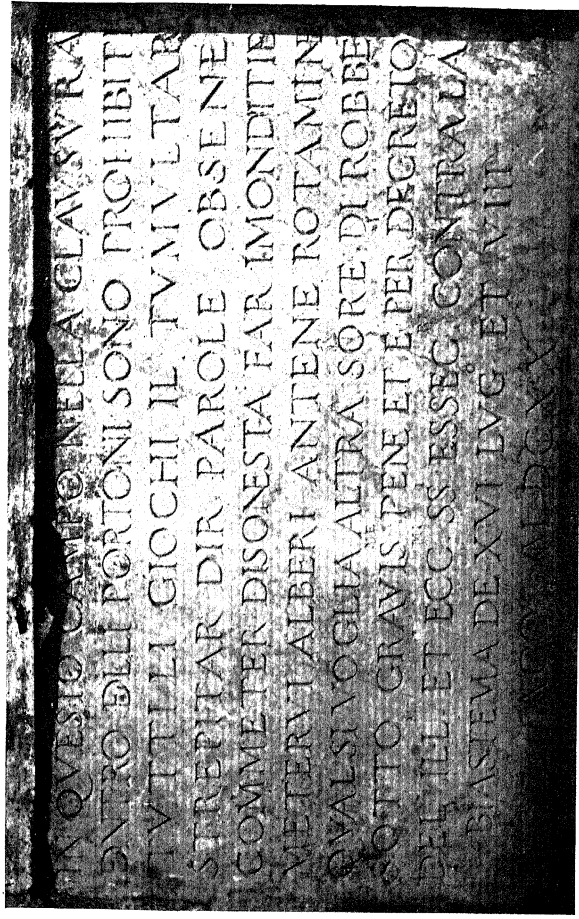 IN QVESTO CAMPO NELLA CLAVSVRA
DNTRO DLLI PORTONI SONO PROHIBITI
TVTTI LI GIOCHI IL TVMVLTAR
STREPITAR DIR PAROLE OBSENE
COMMETER DISONESTA FAR IMONDITIE
METERVI ALBERI ANTENE ROTAMINI
QVALSIVOGLIA ALTRA SORE DI ROBBE
SOTTO GRAVIS PENE ET E PER DECRETO
DEL ILL ET ECC SS ESSEC CONTRA LA
BIASTEMA DE XVI LVG ET VIII